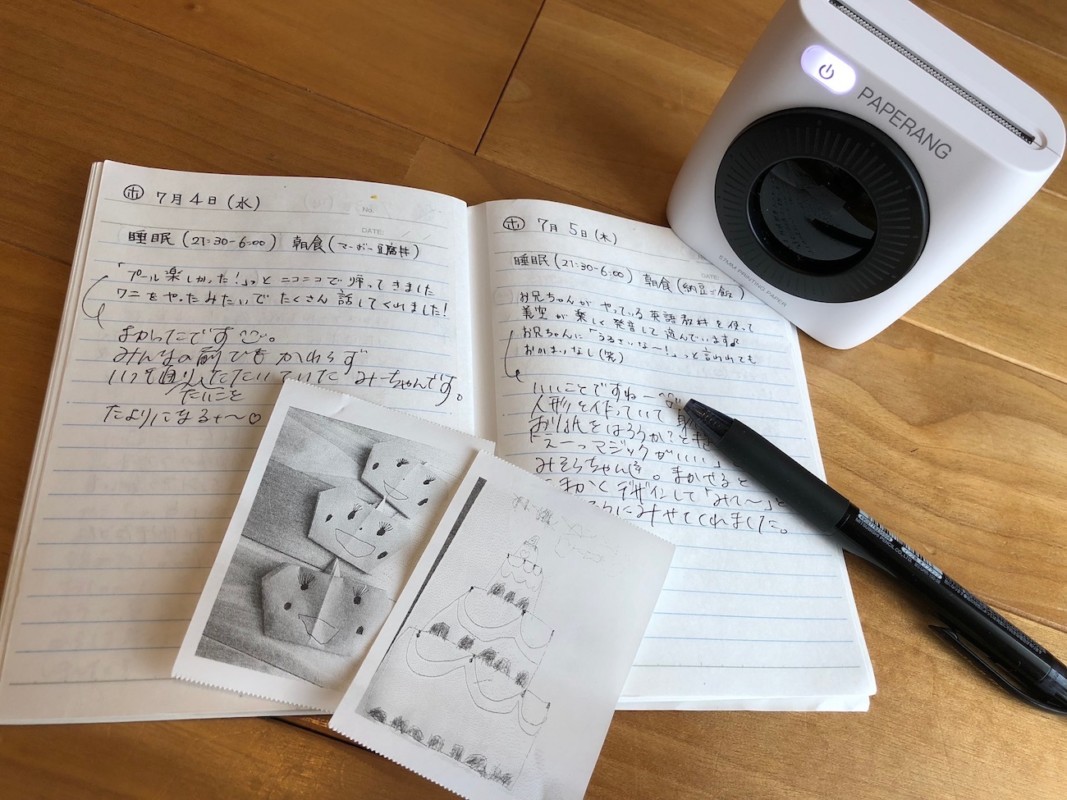 ㋭ 7月4日(水)
No.
DATE:
睡眠(21:30-6:00) 朝食(マーボー豆腐丼)
「プール楽しかった!」とニコニコで帰ってきました
ワニをやったみたいでたくさん話してくれました!
よかったです。
みんなの前でもかわらず
いつも通り していた みーちゃんです。
たいこを
たよりになるな〜♡
㋭ 7月5日(木)
DATE:
睡眠(21:30-6:00) 朝食(納豆ご飯)
お兄ちゃんが やっている 英語教材を使って
美空が楽しく発音して遊んでいます♪
お兄ちゃんに「うるさいな〜!」と言われても
おかまいなし(笑)
いいことですねー
人形を作っていて
おり紙をはろうか?と
「えーっマジックがいい」
みそらちゃん。まかせると
こまかくデザインして「みて〜」と
にみせてくれました。
PAPERANG
57MM PRINTING PAPER